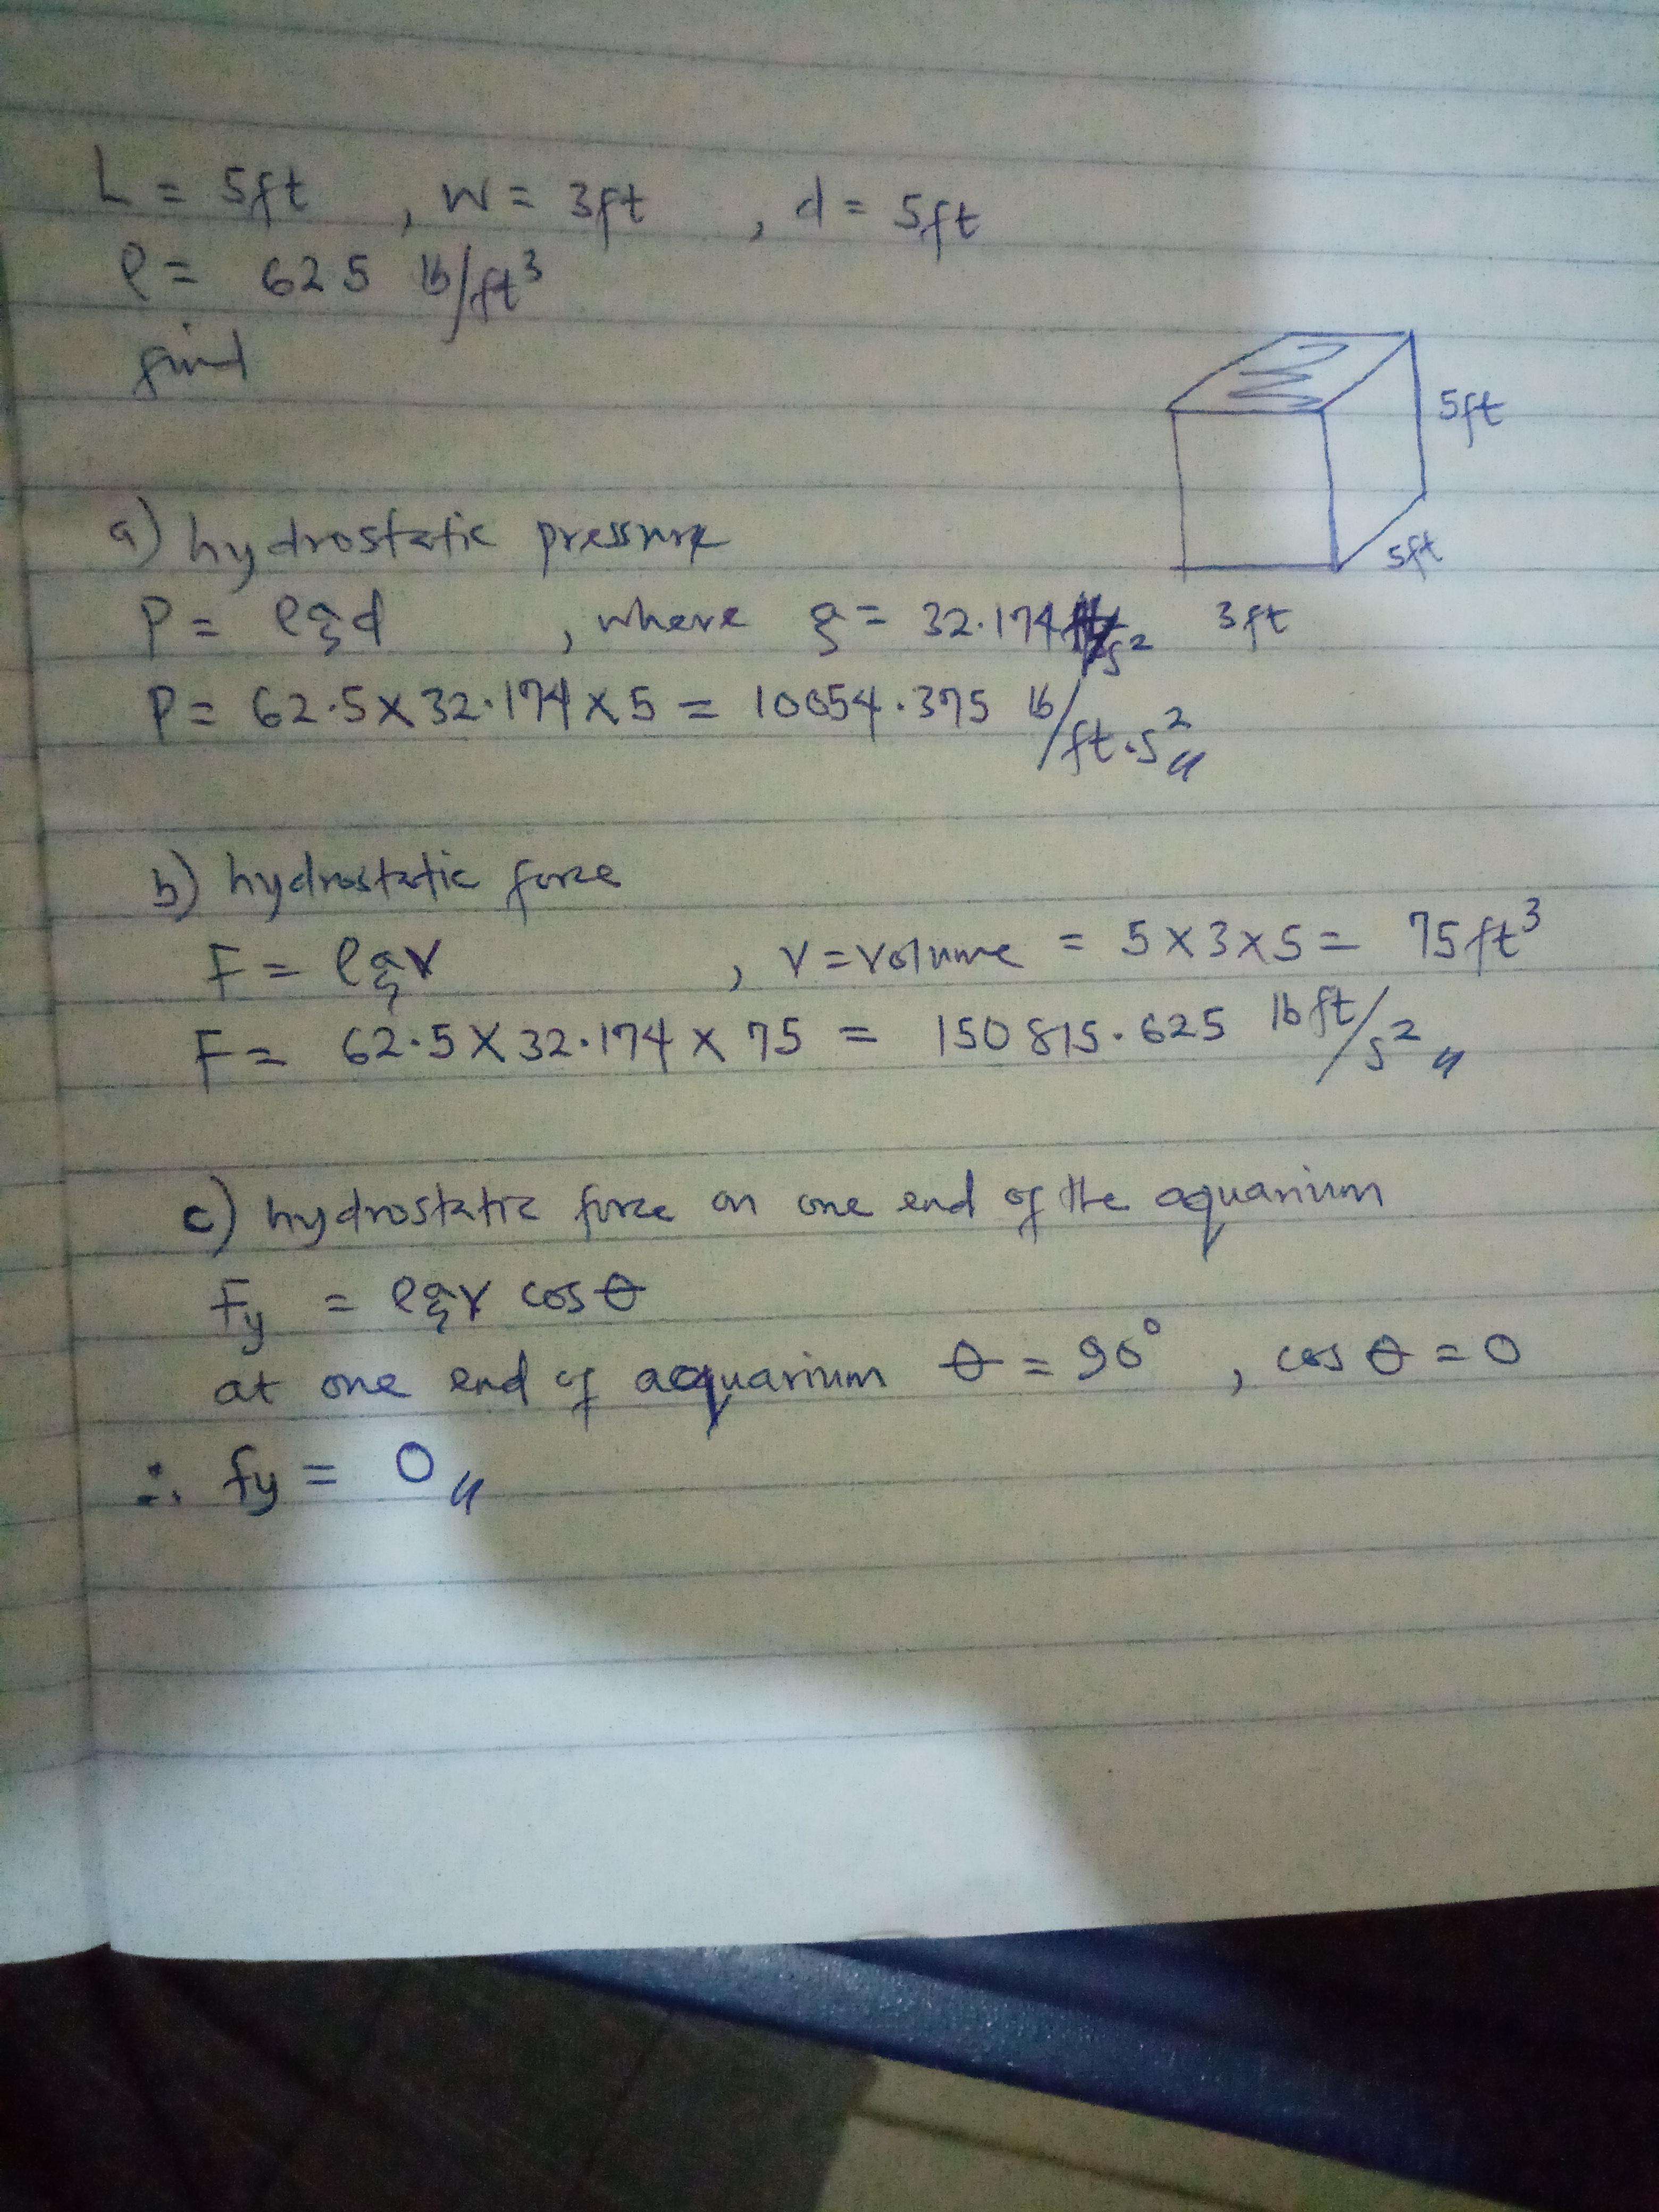 L = 5ft , W = 3ft , d = 5ft
ρ = 62 5 lb/ft³
find
5ft
5ft
3ft
a) hydrostatic pressure
P = ρgd , where g = 32.174 ft/s²
P = 62.5 x 32.174 x 5 = 10054.375 lb/ft.s²
b) hydrostatic force
F = ρgV , V = volume = 5 x 3 x 5 = 75ft³
F = 62.5 x 32.174 x 75 = 150 815.625 lb ft/s²
c) hydrostatic force on one end of the aquarium
Fy = ρgV cos θ
at one end of aquarium θ = 90° , cos θ = 0
∴ fy = 0